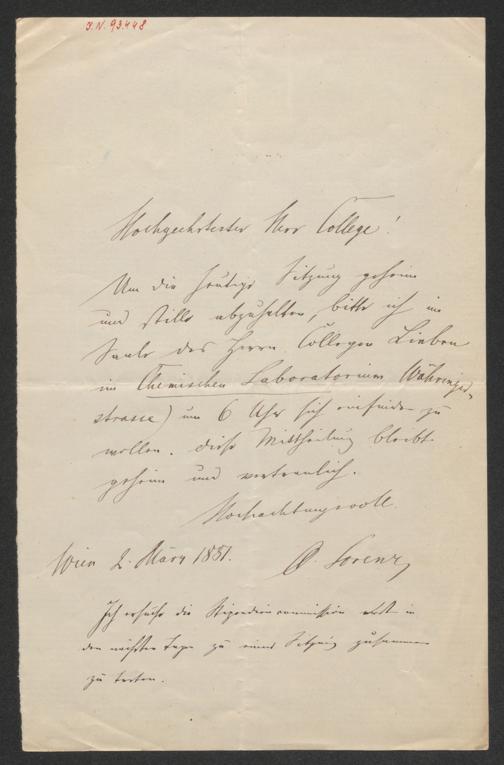 J.N. 93.448
Hochgeehrtester Herr College!
Um die heutige Sitzung geheim
und stille abzuhalten, bitte ich im
Saale des Herrn Collegen Lieben
im Chemischen Laboratorium (Währinger-
strasse) um 6 Uhr sich einfinden zu
wollen. Diese Mittheilung bleibt
geheim und vertraulich.
Hochachtungsvoll
Wien 2. März 1881. O. Lorenz
Ich ersuche die Stipendiencommission in
den nächsten Tagen zu einer Sitzung zusammen
zu treten.